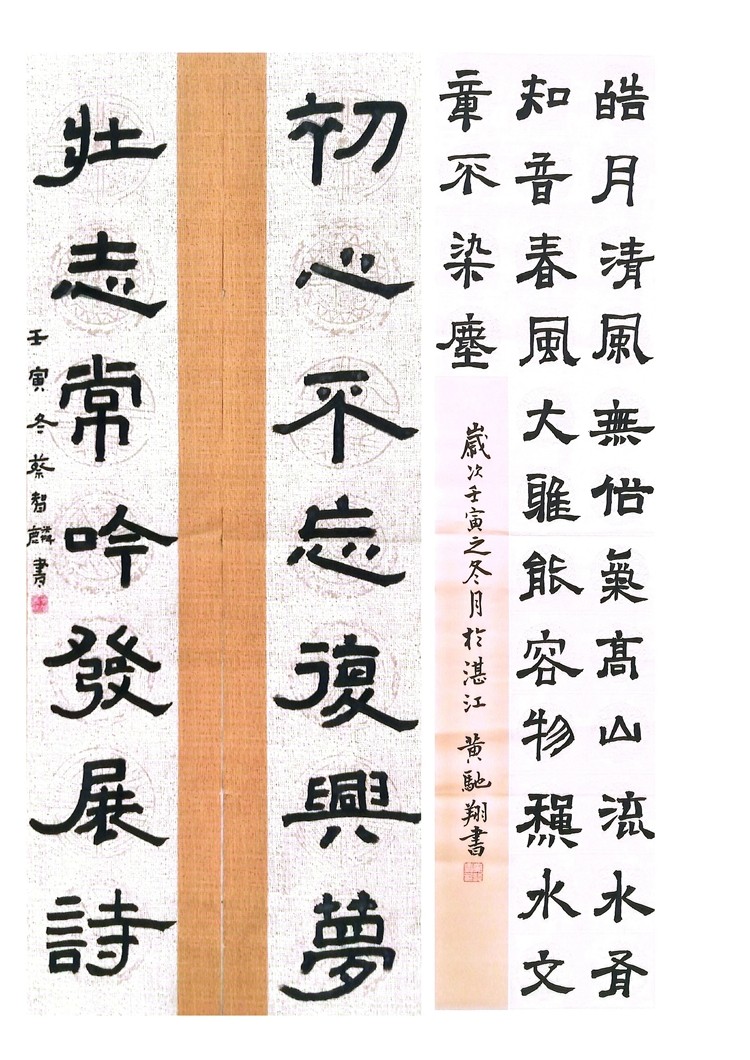 皓月清風無俗氣高山流水有
知音春風大雅能容物秋水文
章不染塵
歲次壬寅之冬月於湛江 黄馳翔書
初心不忘復興夢
壯志常吟發展詩
壬寅冬蔡智麟書